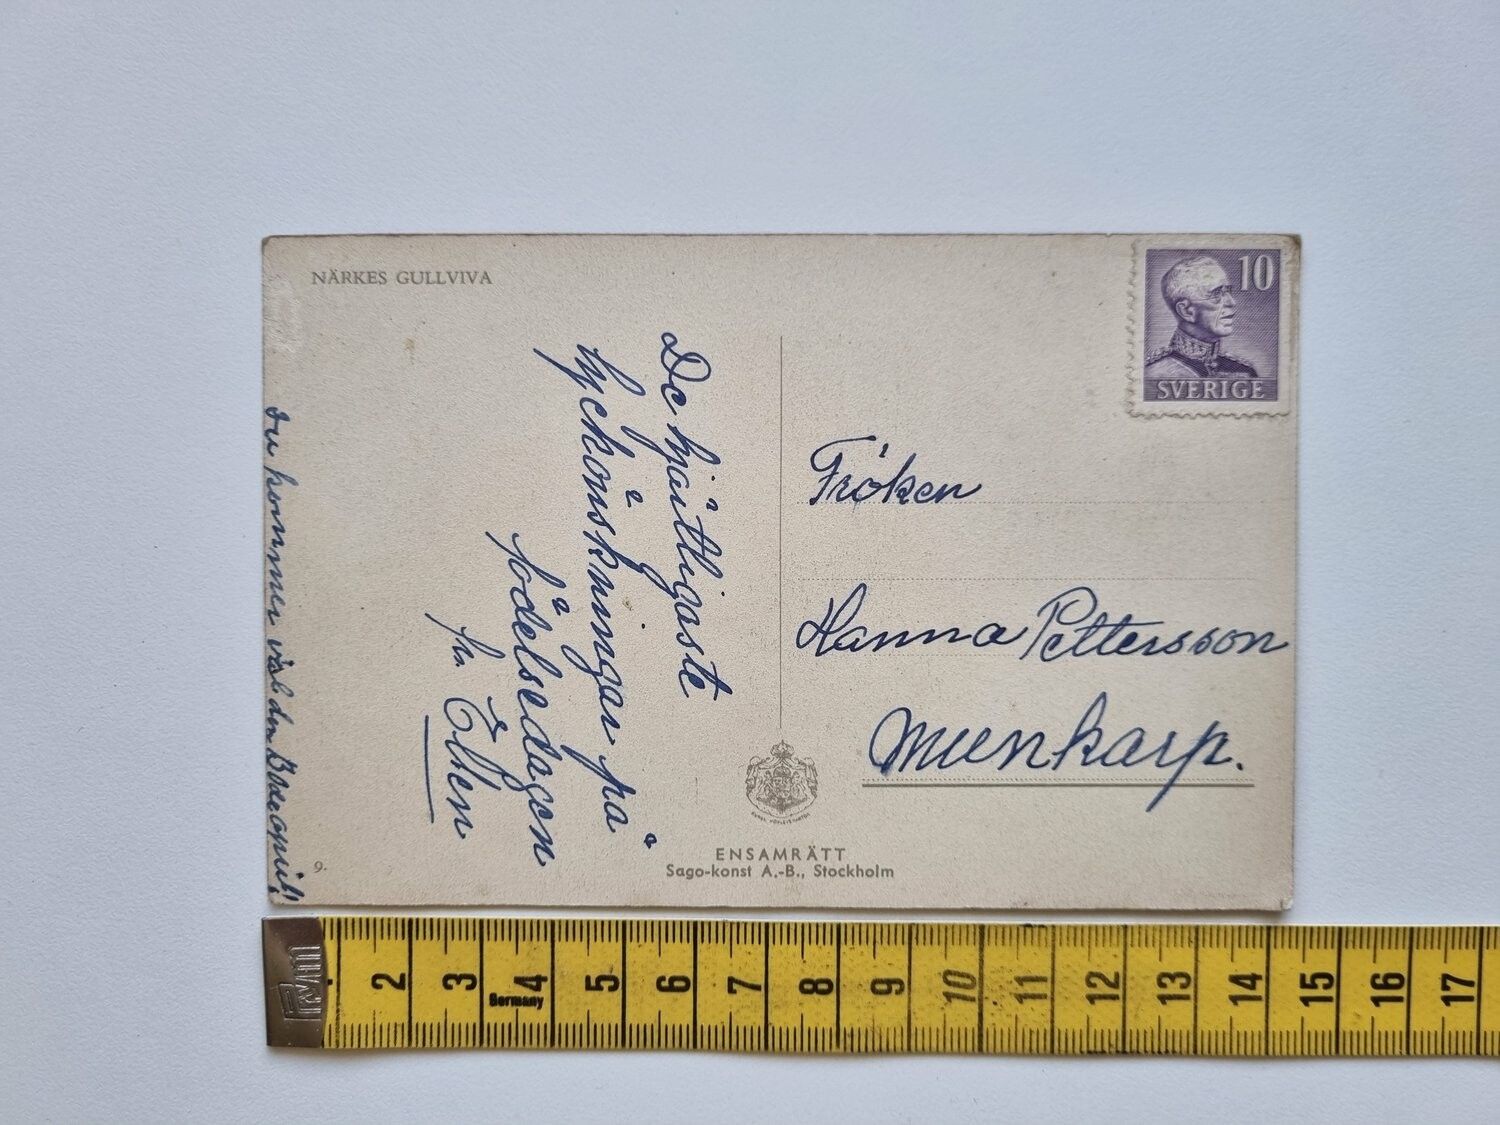 NÄRKES GULLVIVA
10
SVERIGE
De hjärtligaste
lyckönskningar på
födelsedagen
fr. Ellen
Du kommer väl den
Fröken
Hanna Pettersson
Munkarp.
9.
ENSAMRÄTT
Sago-konst A.-B., Stockholm
2 3 4 5 6 7 8 9 10 11 12 13 14 15 16 17
Germany